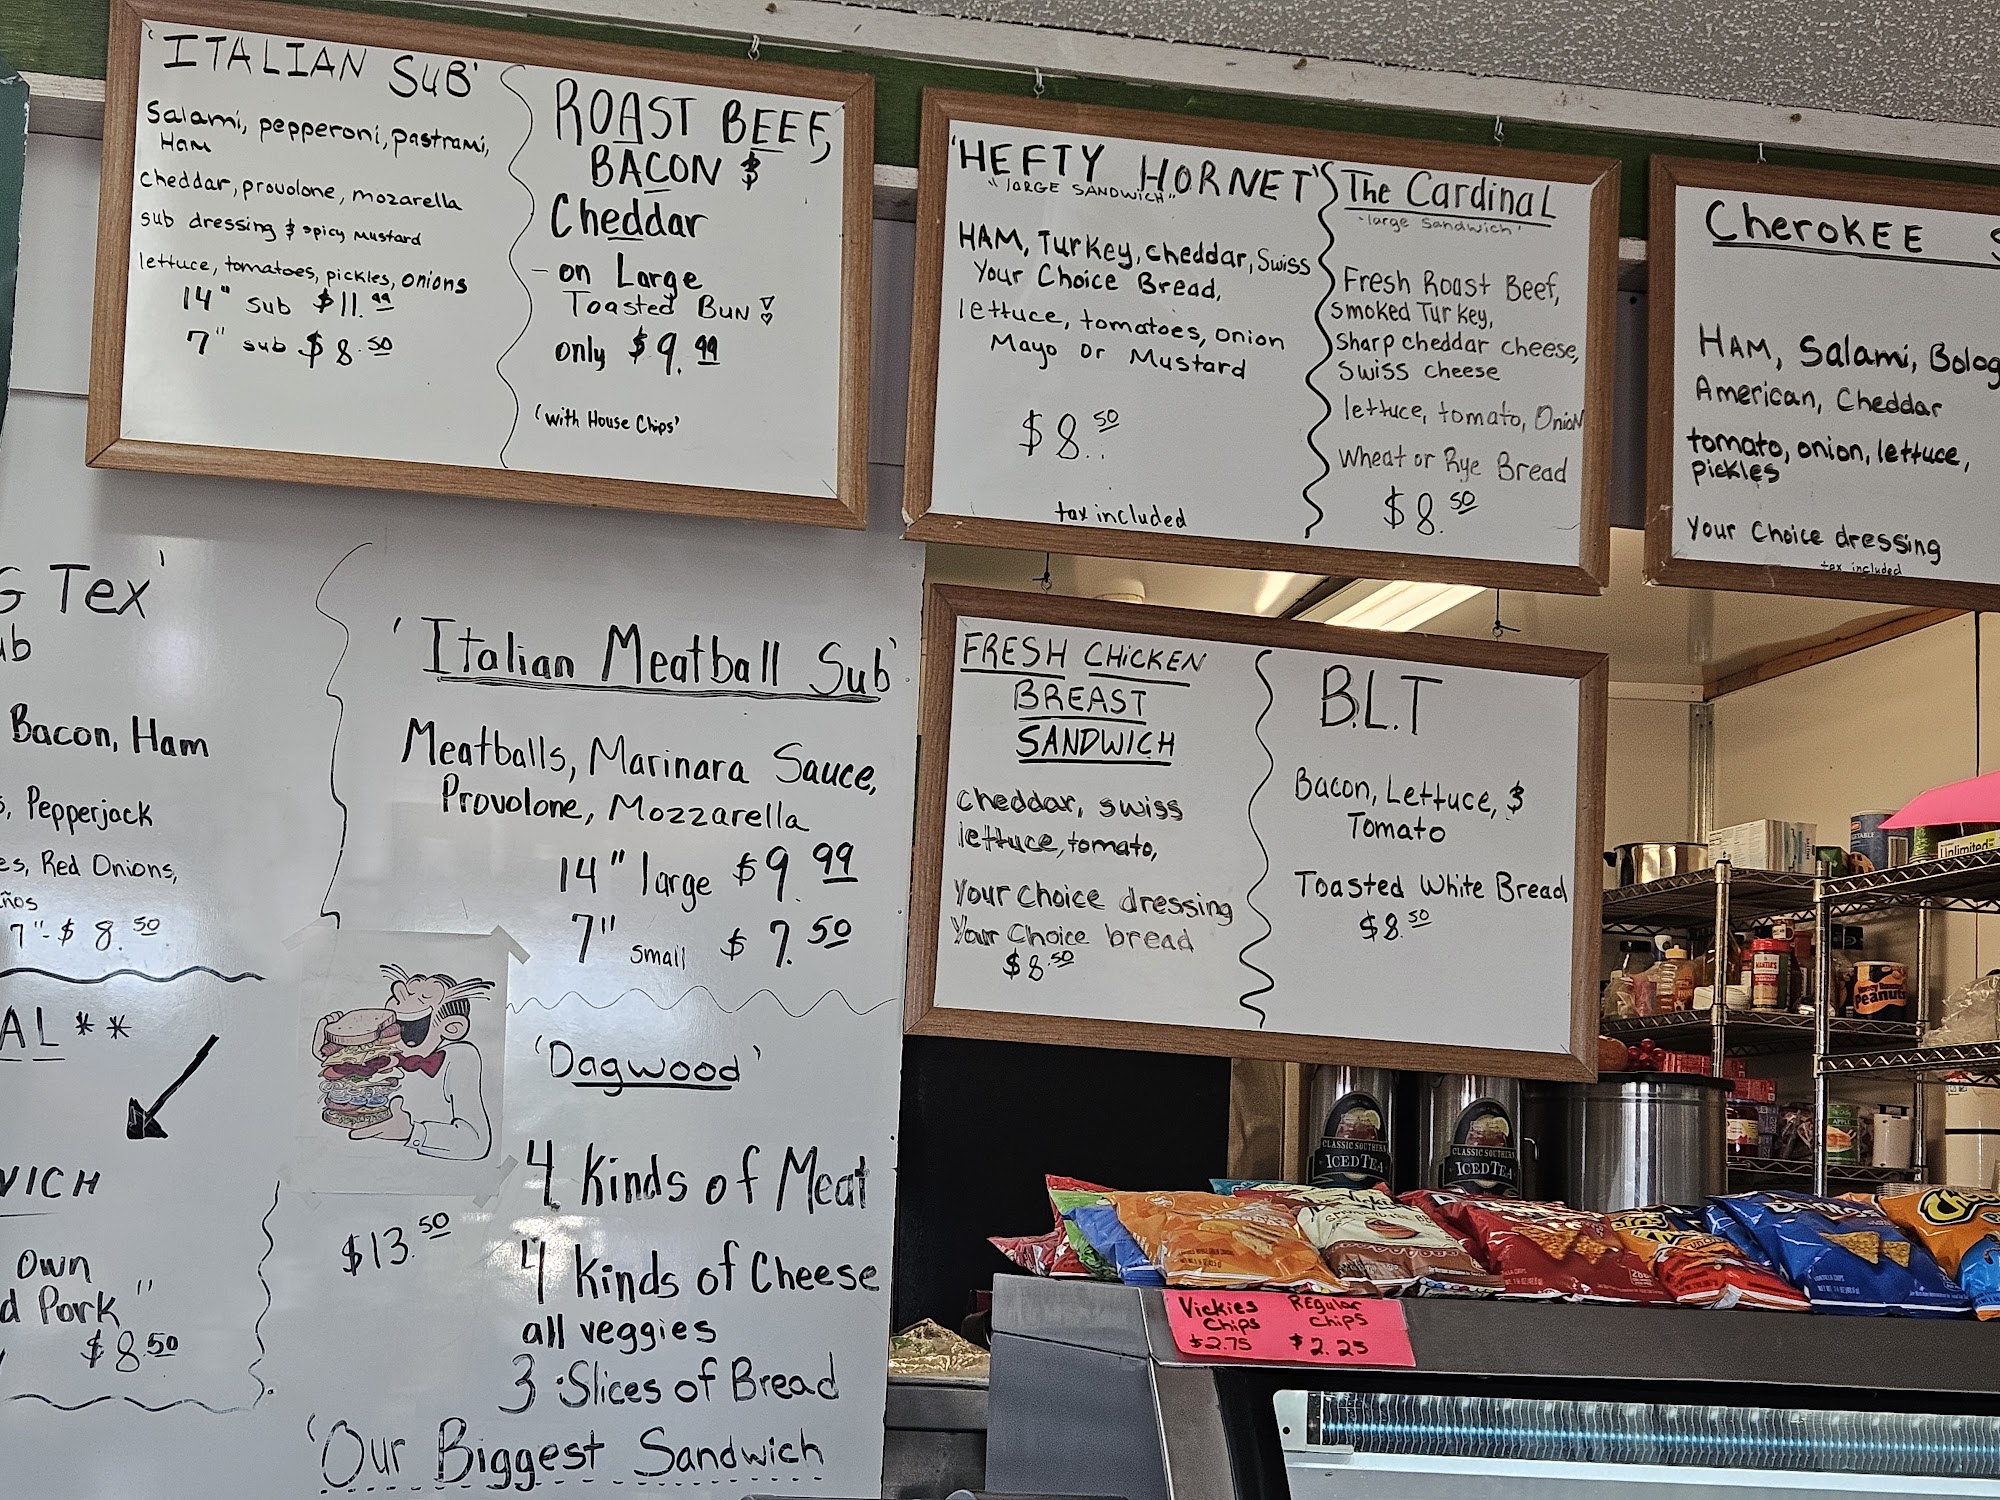 'ITALIAN SUB'
Salami, pepperoni, pastrami,
Ham
cheddar, provolone, mozarella
sub dressing & spicy mustard
lettuce, tomatoes, pickles, onions
14" sub $11.99
7" sub $8.50
ROAST BEEF,
BACON &
Cheddar
- on Large
Toasted BUN!
only $9.99
(with House Chips'
'HEFTY HORNET'
"LARGE SANDWICH"
HAM, Turkey, cheddar, Swiss
Your Choice Bread,
lettuce, tomatoes, onion
Mayo or Mustard
$8.50
tax included
The Cardinal
'large Sandwich'
Fresh Roast Beef,
Smoked Turkey,
Sharp cheddar cheese,
Swiss cheese
lettuce, tomato, Onion
Wheat or Rye Bread
$8.50
CheroKEE S
HAM, Salami, Bolog
American, Cheddar
tomato, onion, lettuce,
pickles
Your Choice dressing
tax included
G Tex'
ub
Bacon, Ham
s, Pepperjack
es, Red Onions,
ños
7"-$ 8.50
AL**
WICH
Own
d Pork"
$8.50
'Italian Meatball Sub'
Meatballs, Marinara Sauce,
Provolone, Mozzarella
14" large $9.99
7" small $7.50
'Dagwood'
4 Kinds of Meat
$13.50
4 Kinds of Cheese
all veggies
3 Slices of Bread
'Our Biggest Sandwich
FRESH CHICKEN
BREAST
SANDWICH
cheddar, swiss
lettuce, tomato,
Your choice dressing
Your Choice bread
$8.50
B.L.T
Bacon, Lettuce, &
Tomato
Toasted White Bread
$8.50
Unlimited
Peanuts
CLASSIC SOUTHERN
ICED TEA
CLASSIC SOUTHERN
ICED TEA
Vickies
Chips
$2.75
Regular
chips
$2.25